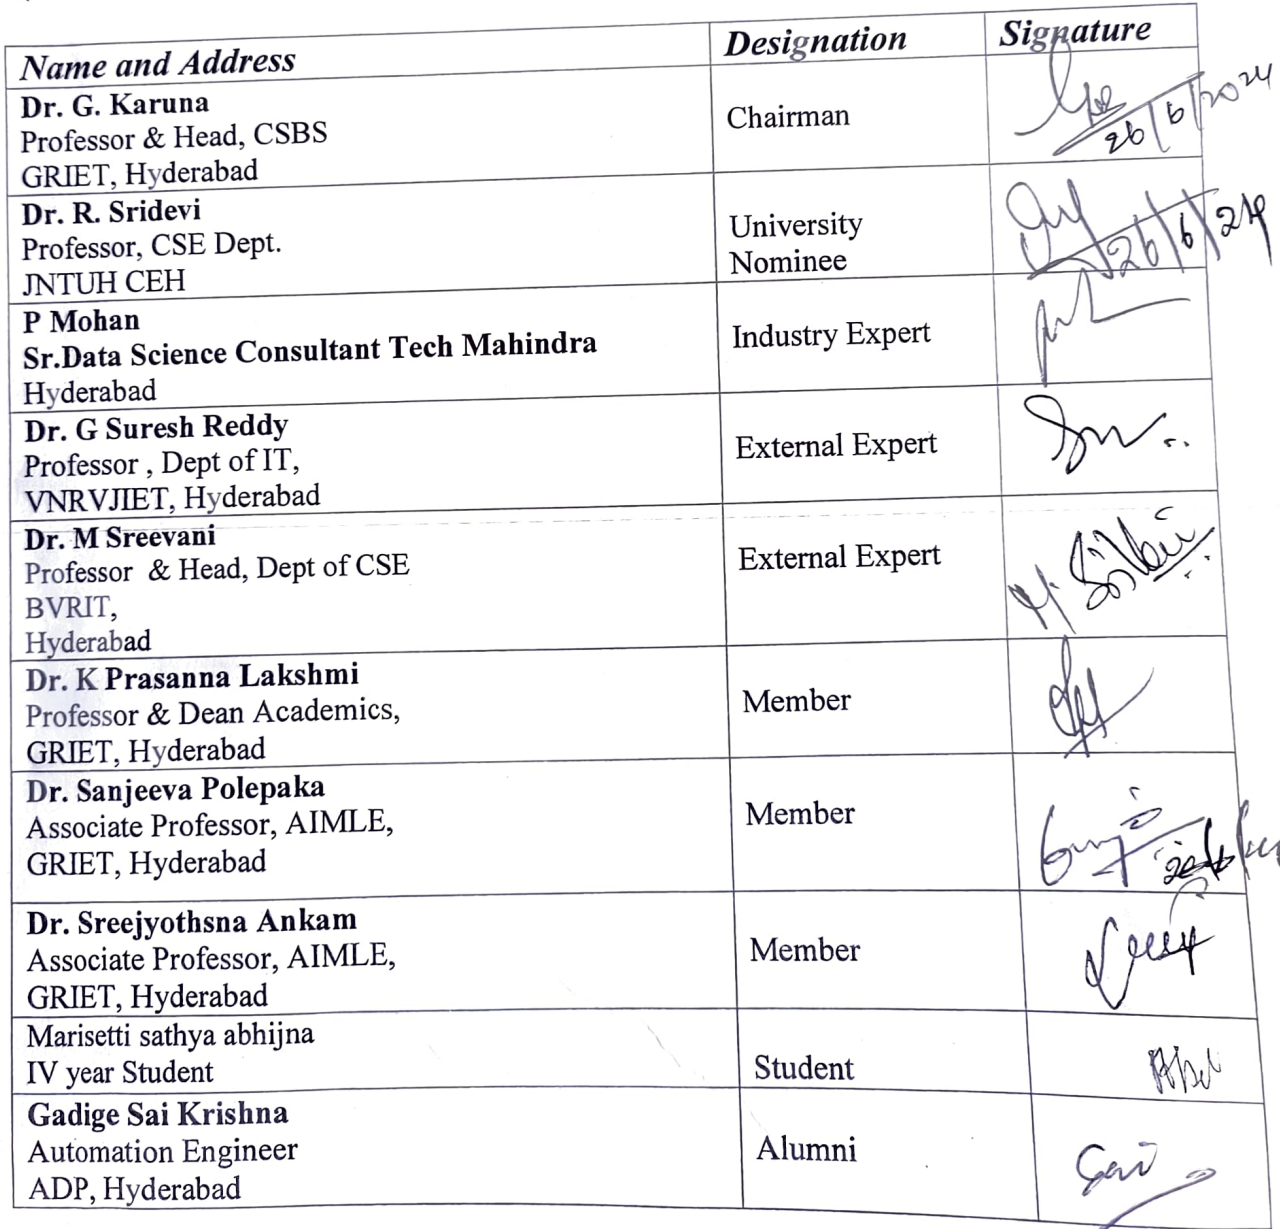 Name and Address Designation Signature
Dr. G. Karuna
Professor & Head, CSBS
GRIET, Hyderabad
Chairman
26/6/2024
Dr. R. Sridevi
Professor, CSE Dept.
JNTUH CEH
University
Nominee
26/6/24
P Mohan
Sr.Data Science Consultant Tech Mahindra
Hyderabad
Industry Expert
Dr. G Suresh Reddy
Professor , Dept of IT,
VNRVJIET, Hyderabad
External Expert
Dr. M Sreevani
Professor & Head, Dept of CSE
BVRIT,
Hyderabad
External Expert
Dr. K Prasanna Lakshmi
Professor & Dean Academics,
GRIET, Hyderabad
Member
Dr. Sanjeeva Polepaka
Associate Professor, AIMLE,
GRIET, Hyderabad
Member
Dr. Sreejyothsna Ankam
Associate Professor, AIMLE,
GRIET, Hyderabad
Member
Marisetti sathya abhijna
IV year Student
Student
Gadige Sai Krishna
Automation Engineer
ADP, Hyderabad
Alumni